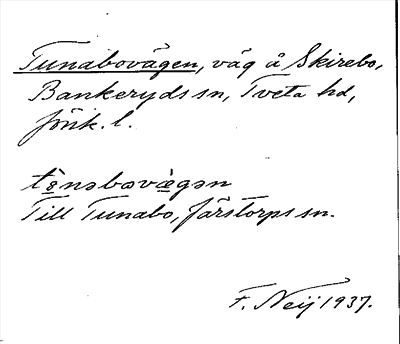 Tunabovägen, väg å Skirebo,
Bankeryds sn, Tveta hd,
Jönk. l.
tɵ̀nəbωvæ̀gən
Till Tunabo, Järstorps sn.
F. Neij 1937.